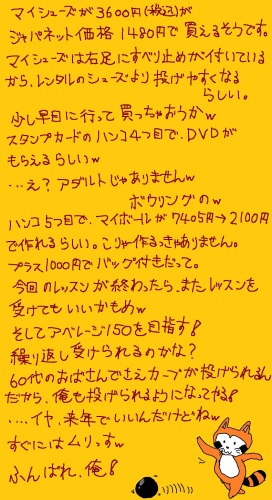 マイシューズが3600円(税込)が
ジャパネット価格1480円で買えるそうです。
マイシューズは右足にすべり止めが付いている
から、レンタルのシューズより投げやすくなる
らしい。
少し早目に行って買っちゃおうかw
スタンプカードのハンコ4つ目で、DVDが
もらえるらしいw
…え？アダルトじゃありませんw
ボウリングのw
ハンコ5つ目で、マイボールが7405円→2100円
で作れるらしい。こりゃ作るっきゃありません。
プラス1000円でバッグ付きだって。
今回のレッスンが終わったら、またレッスンを
受けてもいいかもw
そしてアベレージ150を目指す!
繰り返し受けられるのかな？
60代のおばさんでさえカーブが投げられるん
だから、俺も投げられるようになってやる!
‥‥イヤ、来年でいいんだけどねw
すぐにはムリっすw
ふんばれ、俺!